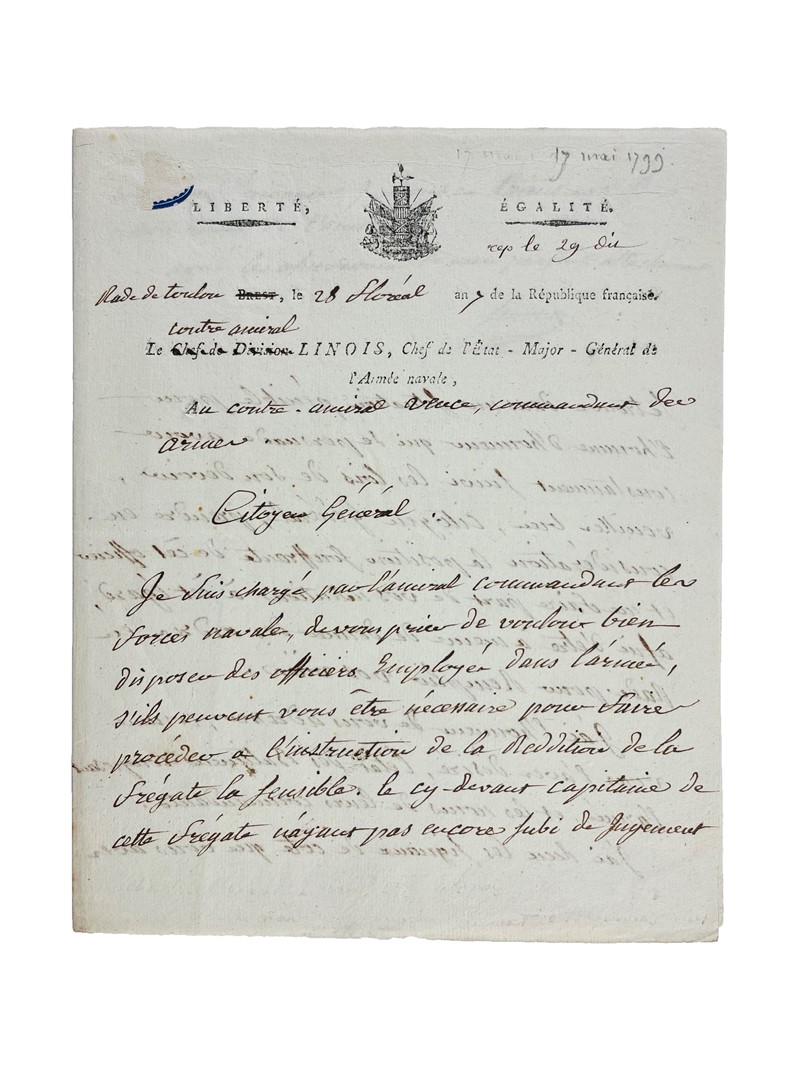 17 mai 1799.
LIBERTÉ,
ÉGALITÉ.
rep le 29 dit
Rade de toulon BREST, le 28 floréal an 7 de la République française.
contre amiral
Le Chef de Division LINOIS, Chef de l'État-Major-Général de
l'Armée navale,
Au contre-amiral Vence, commandant des
armes
Citoyen Général
Je suis chargé par l'amiral commandant les
forces navales, de vous prier de vouloir bien
disposer des officiers Employés dans l'armée,
s'ils peuvent vous être nécessaire pour faire
procéder a l'instruction de la Reddition de la
frégate la sensible. le cy-devant capitaine de
cette frégate n'ayant pas encore subi de Jugement